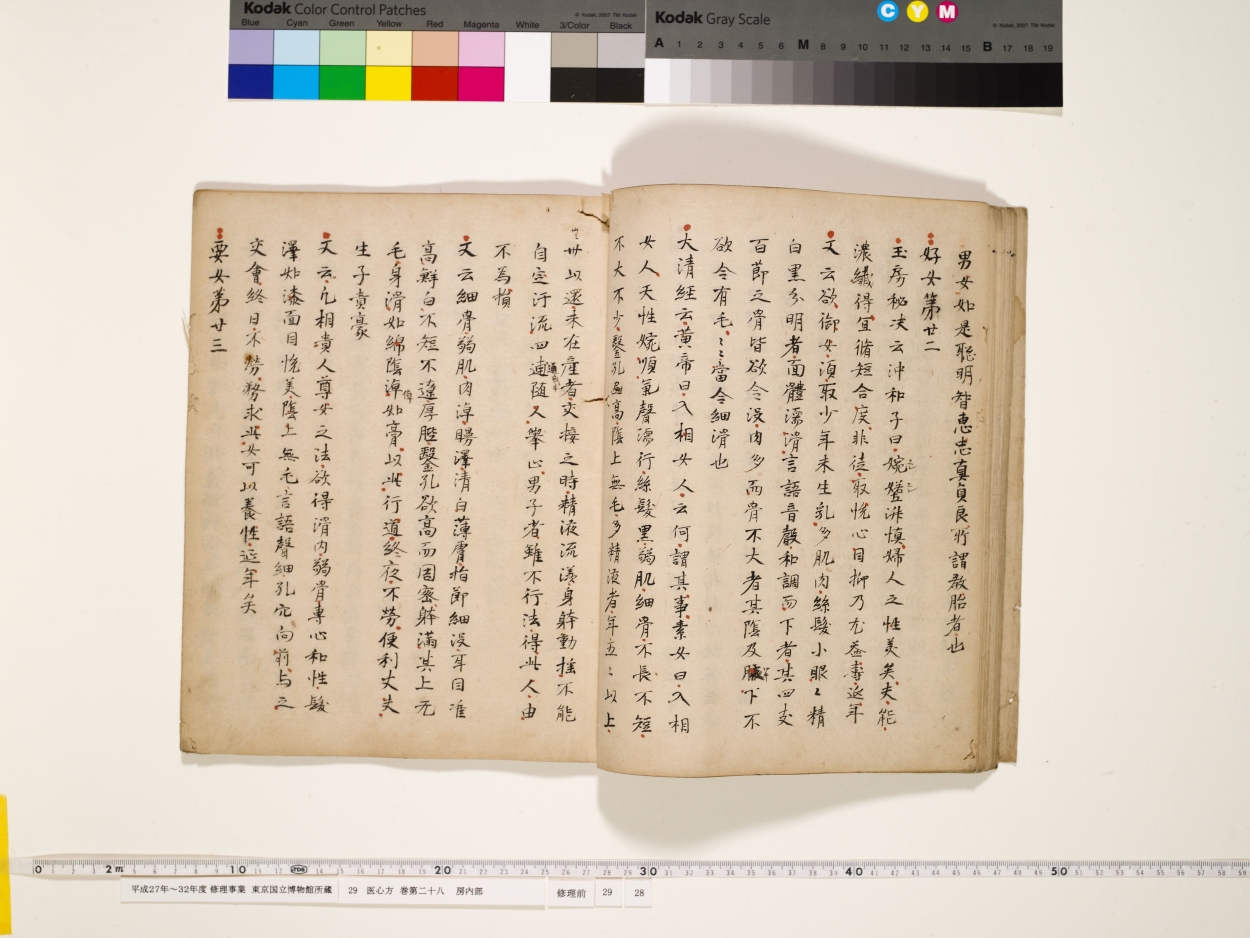 Kodak Color Control Patches
© Kodak, 2007 TM: Kodak
Blue Cyan Green Yellow Red Magenta White 3/Color Black
Kodak Gray Scale
C Y M
© Kodak, 2007 TM: Kodak
A 1 2 3 4 5 6 M 8 9 10 11 12 13 14 15 B 17 18 19
男女如是聡明智恵忠真貞良所謂教胎者也
好女第廿二
玉房秘決云沖和子曰婉㜣淑慎婦人之性美矣夫能
濃纖得宜脩短合度非徒取悅心目抑乃尤益壽延年
又云欲御女須取少年未生乳多肌肉絲髮小眼〻精
白黒分明者面體濡滑言語音聲和調而下者其四支
百節之骨皆欲令没肉多而骨不大者其陰及腋下不
欲令有毛〻〻當令細滑也
大清經云黄帝曰入相女人云何謂其事素女曰入相
女人天性婉順氣聲濡行絲髮黒弱肌細骨不長不短
不大不少鑿孔居高陰上無毛多精液者年五〻以上
卅以還未在産者交接之時精液流漾身躰動揺不能
自定汗流四逋随人舉止男子者雖不行法得此人由
不為損
又云細骨弱肌肉淳曼澤清白薄膚指節細没耳目准
高鮮白不短不遼厚髀鑿孔欲高而周密躰満其上无
毛身滑如綿陰淖如膏以此行道終夜不勞便利丈夫
生子貴豪
又云凡相貴人尊女之法欲得滑肉弱骨專心和性髮
澤如漆面目悅美陰上無毛言語聲細孔穴向前与之
交會終日不勞務求此女可以養性延年矣
要女第廿三
0 2m 10 20 30 40 50
平成27年～32年度 修理事業 東京国立博物館所蔵 29 医心方 巻第二十八 房内部 修理前 29 28